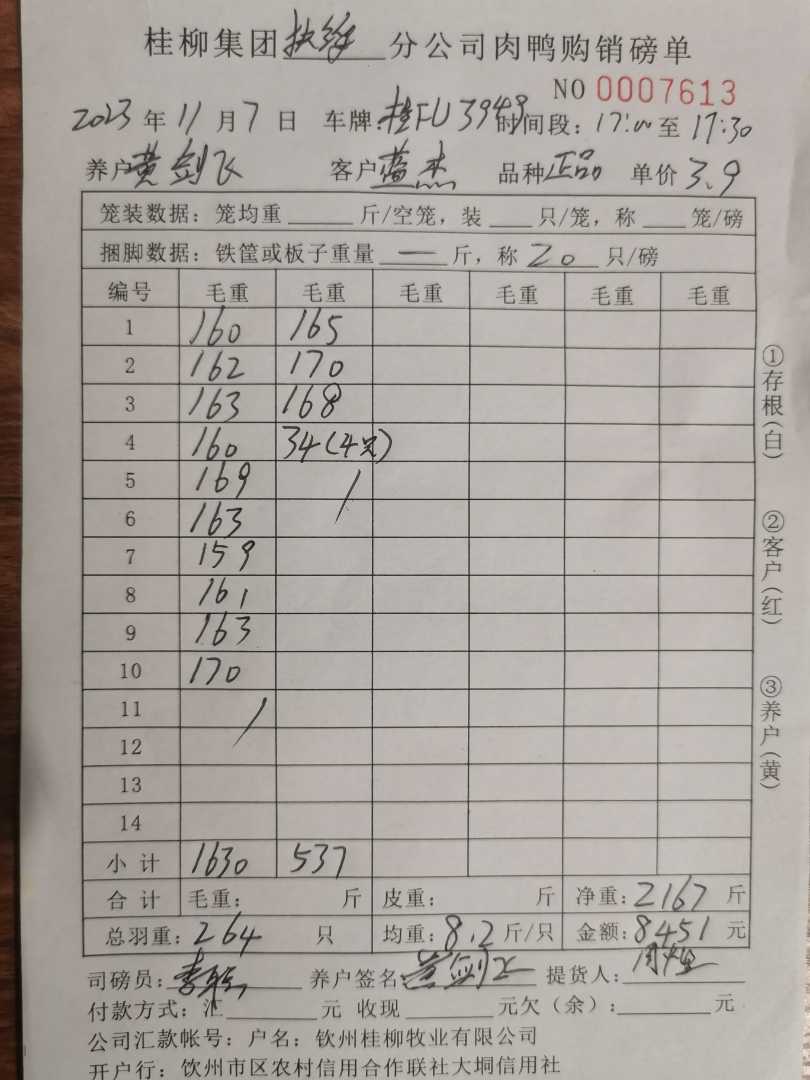 桂柳集团扶绥分公司肉鸭购销磅单
NO 0007613
2023年11月7日 车牌:桂FU3949 时间段:17:00至17:30
养户黄剑飞 客户蓝杰 品种正品 单价3.9
笼装数据:笼均重____斤/空笼,装__只/笼,称__笼/磅
捆脚数据:铁筐或板子重量 — 斤,称 20 只/磅
编号 毛重 毛重 毛重 毛重 毛重 毛重
1 160 165
2 162 170
3 163 168
4 160 34(4只)
5 169 /
6 163
7 159
8 161
9 163
10 170
11 /
12
13
14
小计 1630 537
合计 毛重: 斤 皮重: 斤 净重:2167斤
总羽重:264 只 均重:8.2斤/只 金额:8451元
司磅员: 养户签名黄剑飞 提货人:
付款方式:汇____元 收现____元欠(余):____元
公司汇款帐号:户名:钦州桂柳牧业有限公司
开户行:钦州市区农村信用合作联社大垌信用社
①存根(白)
②客户(红)
③养户(黄)